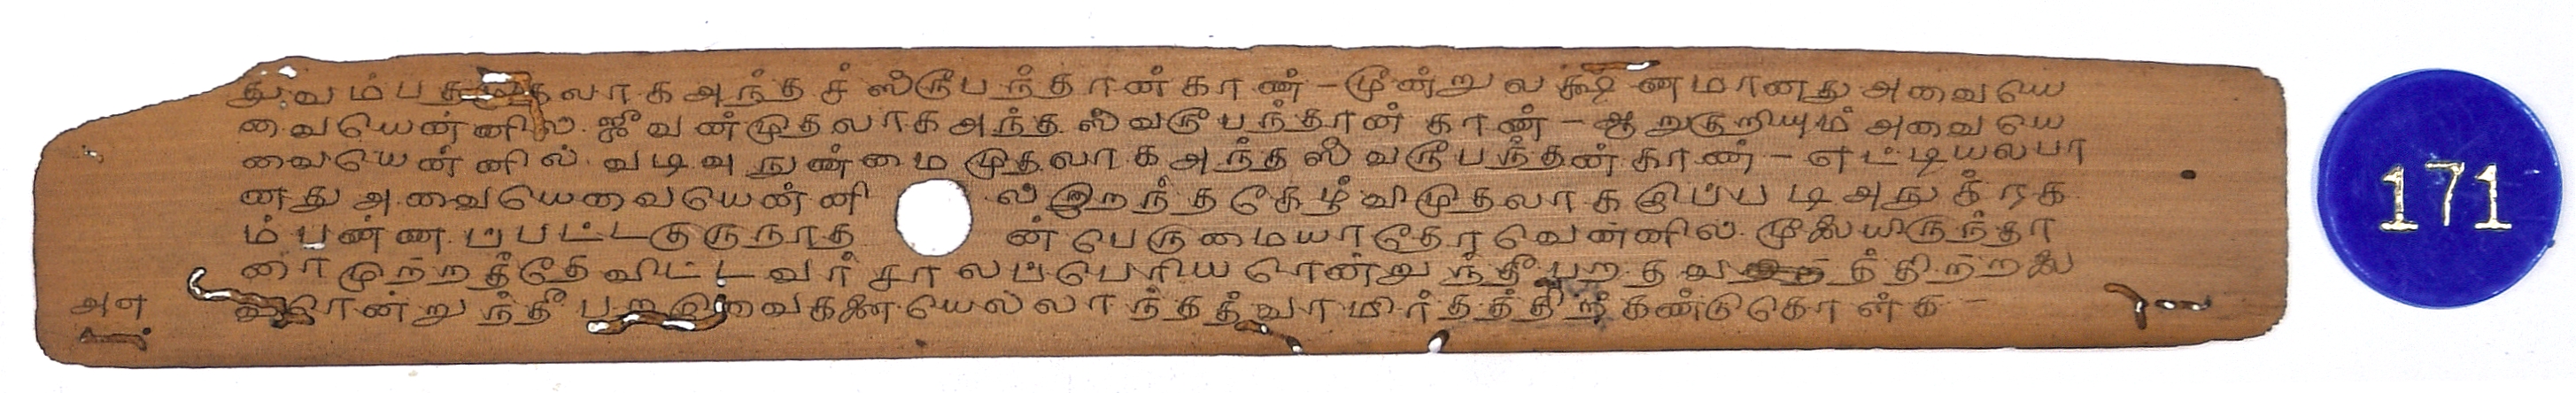 துவம்பதமுதலாக அந்தச் ஸ்ரூபந்தான்காண் - மூன்று லக்ஷணமானது அவையெ
வையென்னில் ஜீவன்முதலாக அந்த ஸ்வரூபந்தான் காண் - ஆறுகுறியும் அவையெ
வையென்னில் வடிவு நுண்மை முதலாக அந்த ஸ்வரூபந்தண் காண் - எட்டியலபா
ணது அவையெவையென்னில் இறந்த கேழ்வி முதலாக இப்படி அநுக்ரக
ம் பண்ணப்பட்டகுருநாதன் பெருமையாதோவென்னில் மூலையிருந்தா
ரை முற்றத்தே விட்டவர் சாலப்பெரியரென்றுந்தீபற த
ரென்றுந்தீபற இவைகளையெல்லாந்தத்வாமிர்தத்திற் கண்டுகொள்க -
அள
171